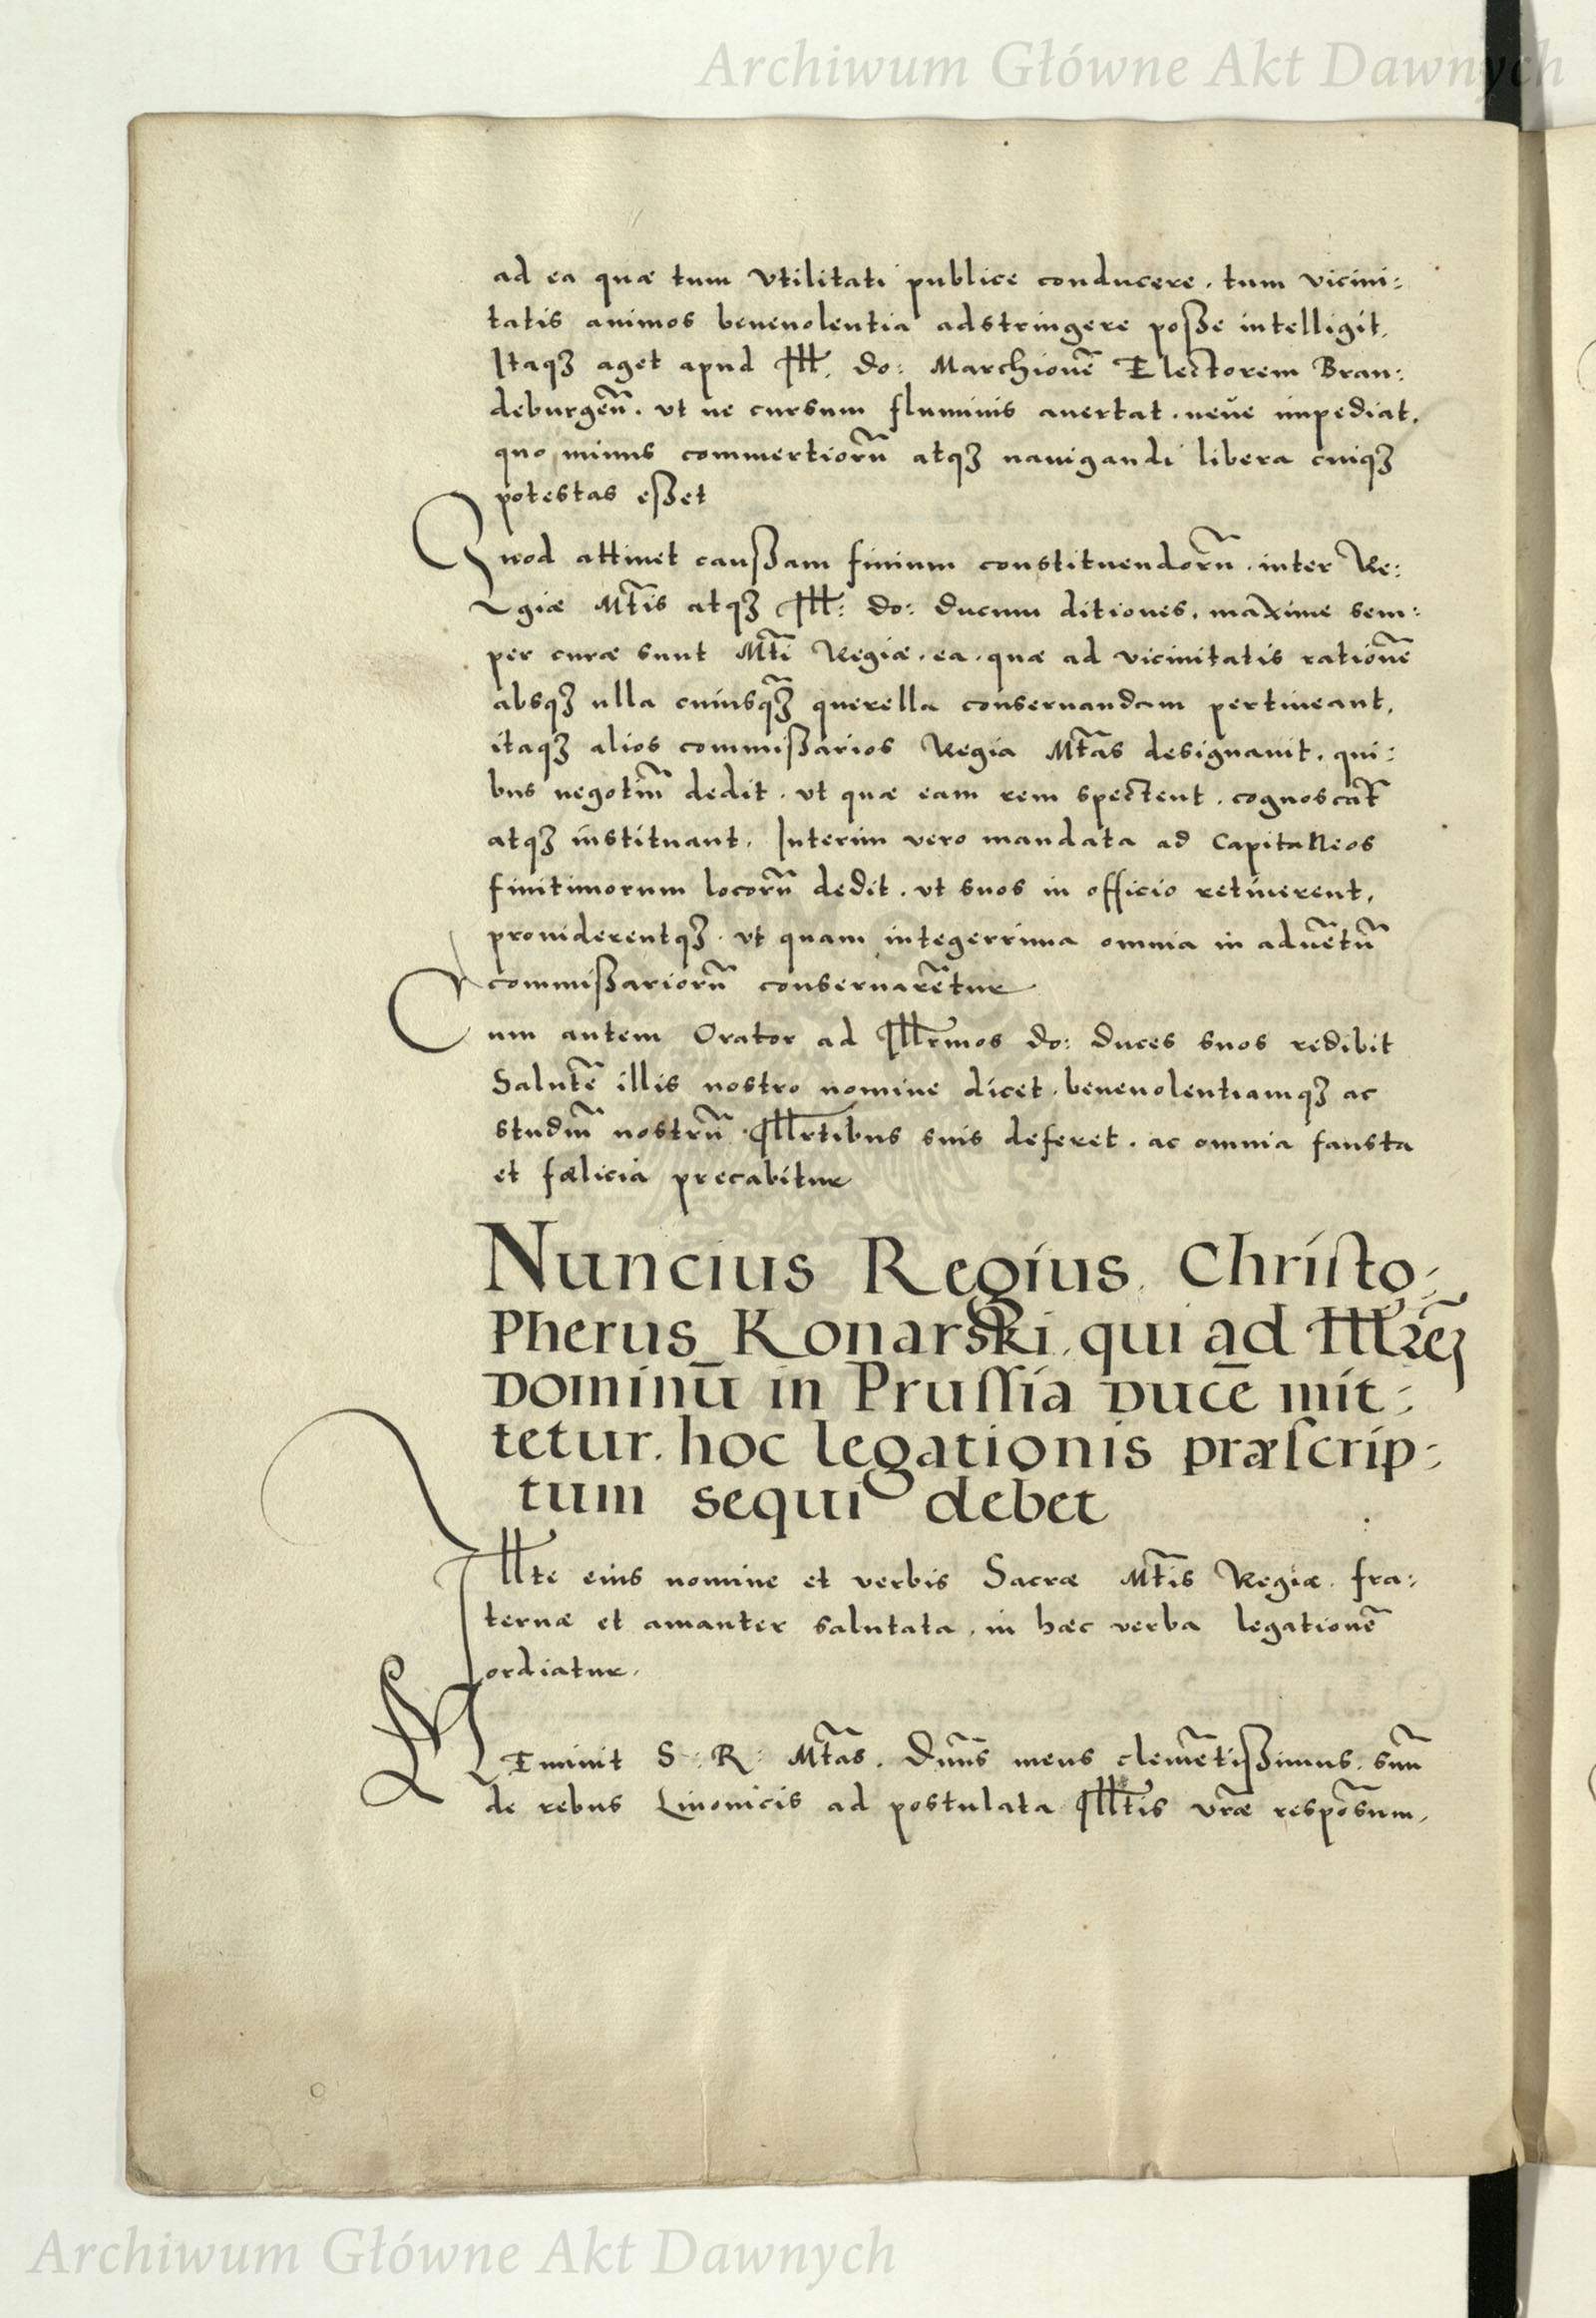 Archiwum Główne Akt Dawnych
ad ea quæ tum vtilitati publice conducere, tum vicini:
tatis animos beneuolentia adstringere poße intelligit,
Itaqꝫ aget apud Ill. do: Marchionē Electorem Bran:
deburgeñ. vt ne cursum fluminis auertat, neue impediat,
quo minus commertiorū atqꝫ nauigandi libera cuiqꝫ
potestas eßet
Quod attinet caußam finium constituendorū, inter Re:
giæ Mt̃is atqꝫ Ill: do: ducum ditiones, maxime sem:
per curæ sunt Mt̃i Regiæ, ea, quæ ad vicinitatis rationē
absqꝫ ulla cuiusq̃ꝫ querella conseruandam pertineant,
itaqꝫ alios commißarios Regia Mt̃as designauit, qui:
bus negotiū dedit, vt quæ eam rem spectent, cognoscãt
atqꝫ instituant, Interim vero mandata ad Capitaneos
finitimorum locorū dedit, vt suos in officio retinerent,
prouiderentqꝫ, vt quam integerrima omnia in aduētū
commißariorū conseruarētur
Cum autem Orator ad Illr̃mos do: duces suos redibit
Salutē illis nostro nomine dicet, beneuolentiamqꝫ ac
studiū nostrū Illr̃tibus suis deferet, ac omnia fausta
et fœlicia precabitur
Nuncius Regius, Christo:
Pherus Konarski, qui ad Illr̃eꝫ
Dominū in Prussia Ducē mit:
tetur, hoc legationis præscrip:
tum sequi debet
Illte eius nomine et verbis Sacræ Mt̃is Regiæ, fra:
ternæ et amanter salutata, in hæc verba legationē
ordiatur,
MEminit S: R: Mt̃as, Dñus meus clemẽtißimus, suū
de rebus Liuonicis ad postulata Illt̃is vr̃æ respõsum,
Archiwum Główne Akt Dawnych